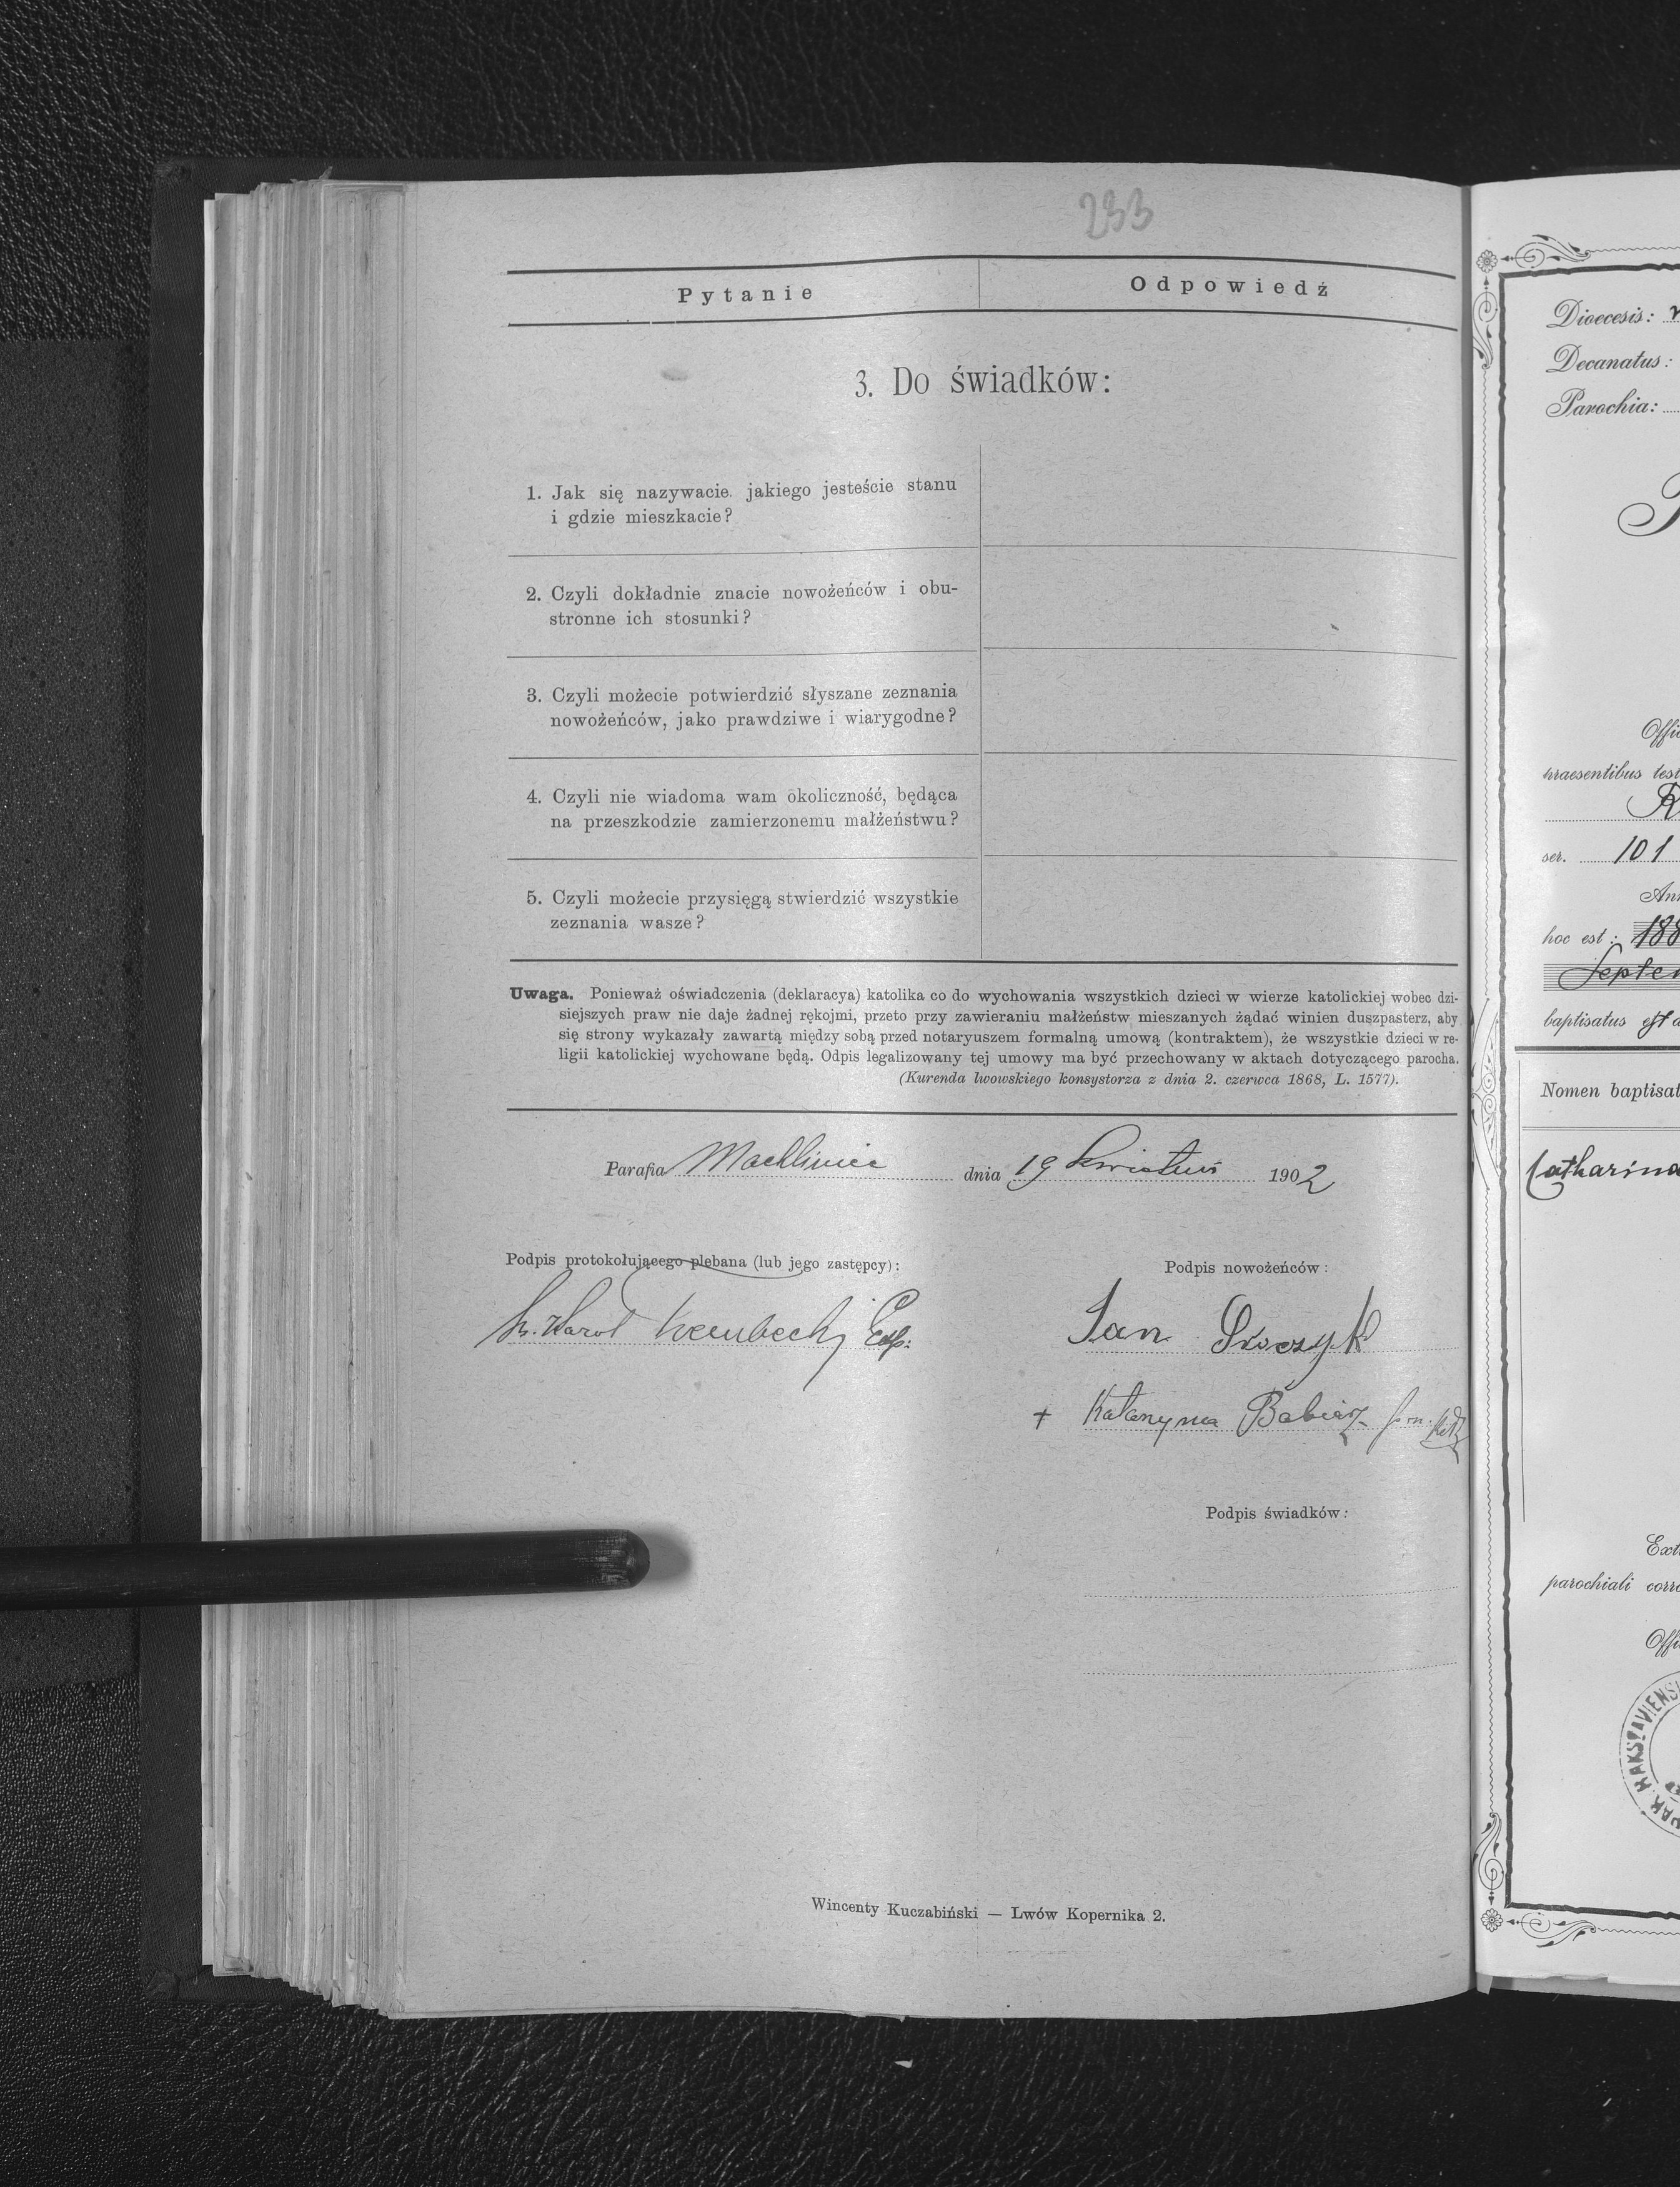 233
Pytanie Odpowiedź
3. Do świadków:
1. Jak się nazywacie jakiego jesteście stanu
i gdzie mieszkacie?
2. Czyli dokładnie znacie nowożeńców i obu-
stronne ich stosunki?
3. Czyli możecie potwierdzić słyszane zeznania
nowożeńców, jako prawdziwe i wiarygodne?
4. Czyli nie wiadoma wam okoliczność, będąca
na przeszkodzie zamierzonemu małżeństwu?
5. Czyli możecie przysięgą stwierdzić wszystkie
zeznania wasze?
Uwaga. Ponieważ oświadczenia (deklaracya) katolika co do wychowania wszystkich dzieci w wierze katolickiej wobec dzi-
siejszych praw nie daje żadnej rękojmi, przeto przy zawieraniu małżeństw mieszanych żądać winien duszpasterz, aby
się strony wykazały zawartą między sobą przed notaryuszem formalną umową (kontraktem), że wszystkie dzieci w re-
ligii katolickiej wychowane będą. Odpis legalizowany tej umowy ma być przechowany w aktach dotyczącego parocha.
(Kurenda lwowskiego konsystorza z dnia 2. czerwca 1868, L. 1577).
Parafia Machliniec dnia 19 kwietnia 1902
Podpis protokołującego plebana (lub jego zastępcy):
Karol
Podpis nowożeńców:
Jan
+ Katarzyna Babiarz
Podpis świadków:
Wincenty Kuczabiński — Lwów Kopernika 2.
Dioecesis:
Decanatus:
Parochia:
praesentibus
ser. 101
hoc est: 188
baptisatus est
Nomen
Catharina
parochiali